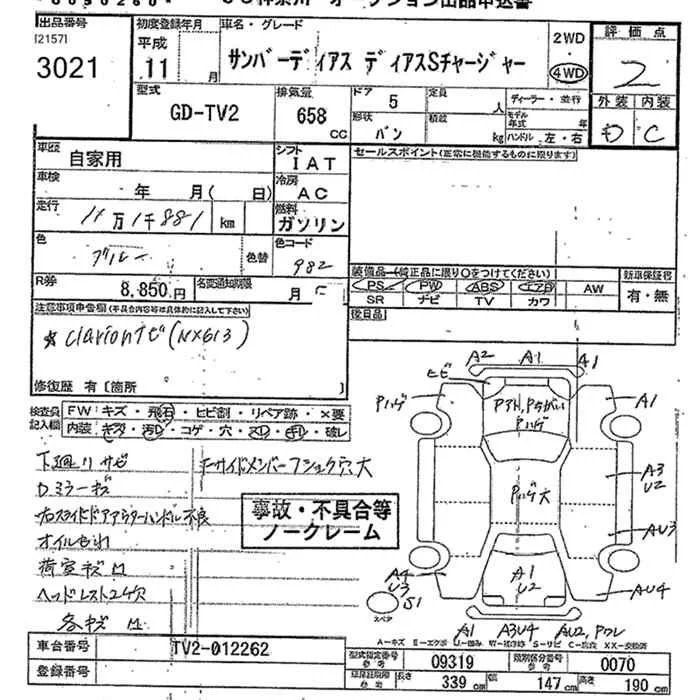 出品番号
[2157]
3021
初度登録年月
平成
11 月
車名・グレード
サンバーディアス ディアスSチャージャー
2WD
4WD
評価点
2
外装 内装
D C
型式
GD-TV2
排気量
658 CC
ドア
5
定員
人
ディーラー・並行
形状
バン
積載
kg
モデル年式
年
ハンドル 左・右
車歴
自家用
シフト
IAT
セールスポイント(正常に機能するものに限ります)
車検
年 月( 日)
冷房
AC
走行
11万1千881 km
燃料
ガソリン
色
ブルー
色替
色コード
982
装備品(純正品に限り○をつけてください)
PS PW ABS エアB AW
SR ナビ TV カワ
新車保証書
有・無
R券
8,850円
名変通知期限
月
後日品
注意事項申告欄(不具合内容等は具体的に記入して下さい)
clarionナビ(NX613)
修復歴 有〔箇所 〕
検査員記入欄
FW キズ・飛石・ヒビ割・リペア跡・×要
内装 キズ・汚レ・コゲ・穴・スレ・剥レ・破レ
下廻りサビ
Fサイドメンバーフショク穴大
Dミラーキズ
右スライドドアアウターハンドル不良
オイルもれ
荷室キズ凹
ヘッドレスト2ケ欠
各キズ凹
事故・不具合等
ノークレーム
A2 A1 A1
ヒビ
Pハゲ
Pハゲ
A1
Pハゲ大
A3
U2
AU3
A1
U2
A4
U3
S1
AU4
スペア
A1 A3U4 AU2, Pワレ
A-キズ E-エクボ U-凹み W-補修跡 S-サビ C-腐蝕 XX-交換済
車台番号
TV2-012262
登録番号
型式指定番号
参考
09319
類別区分番号
参考
0070
参考
長さ
339 cm
幅
147 cm
高さ
190 cm